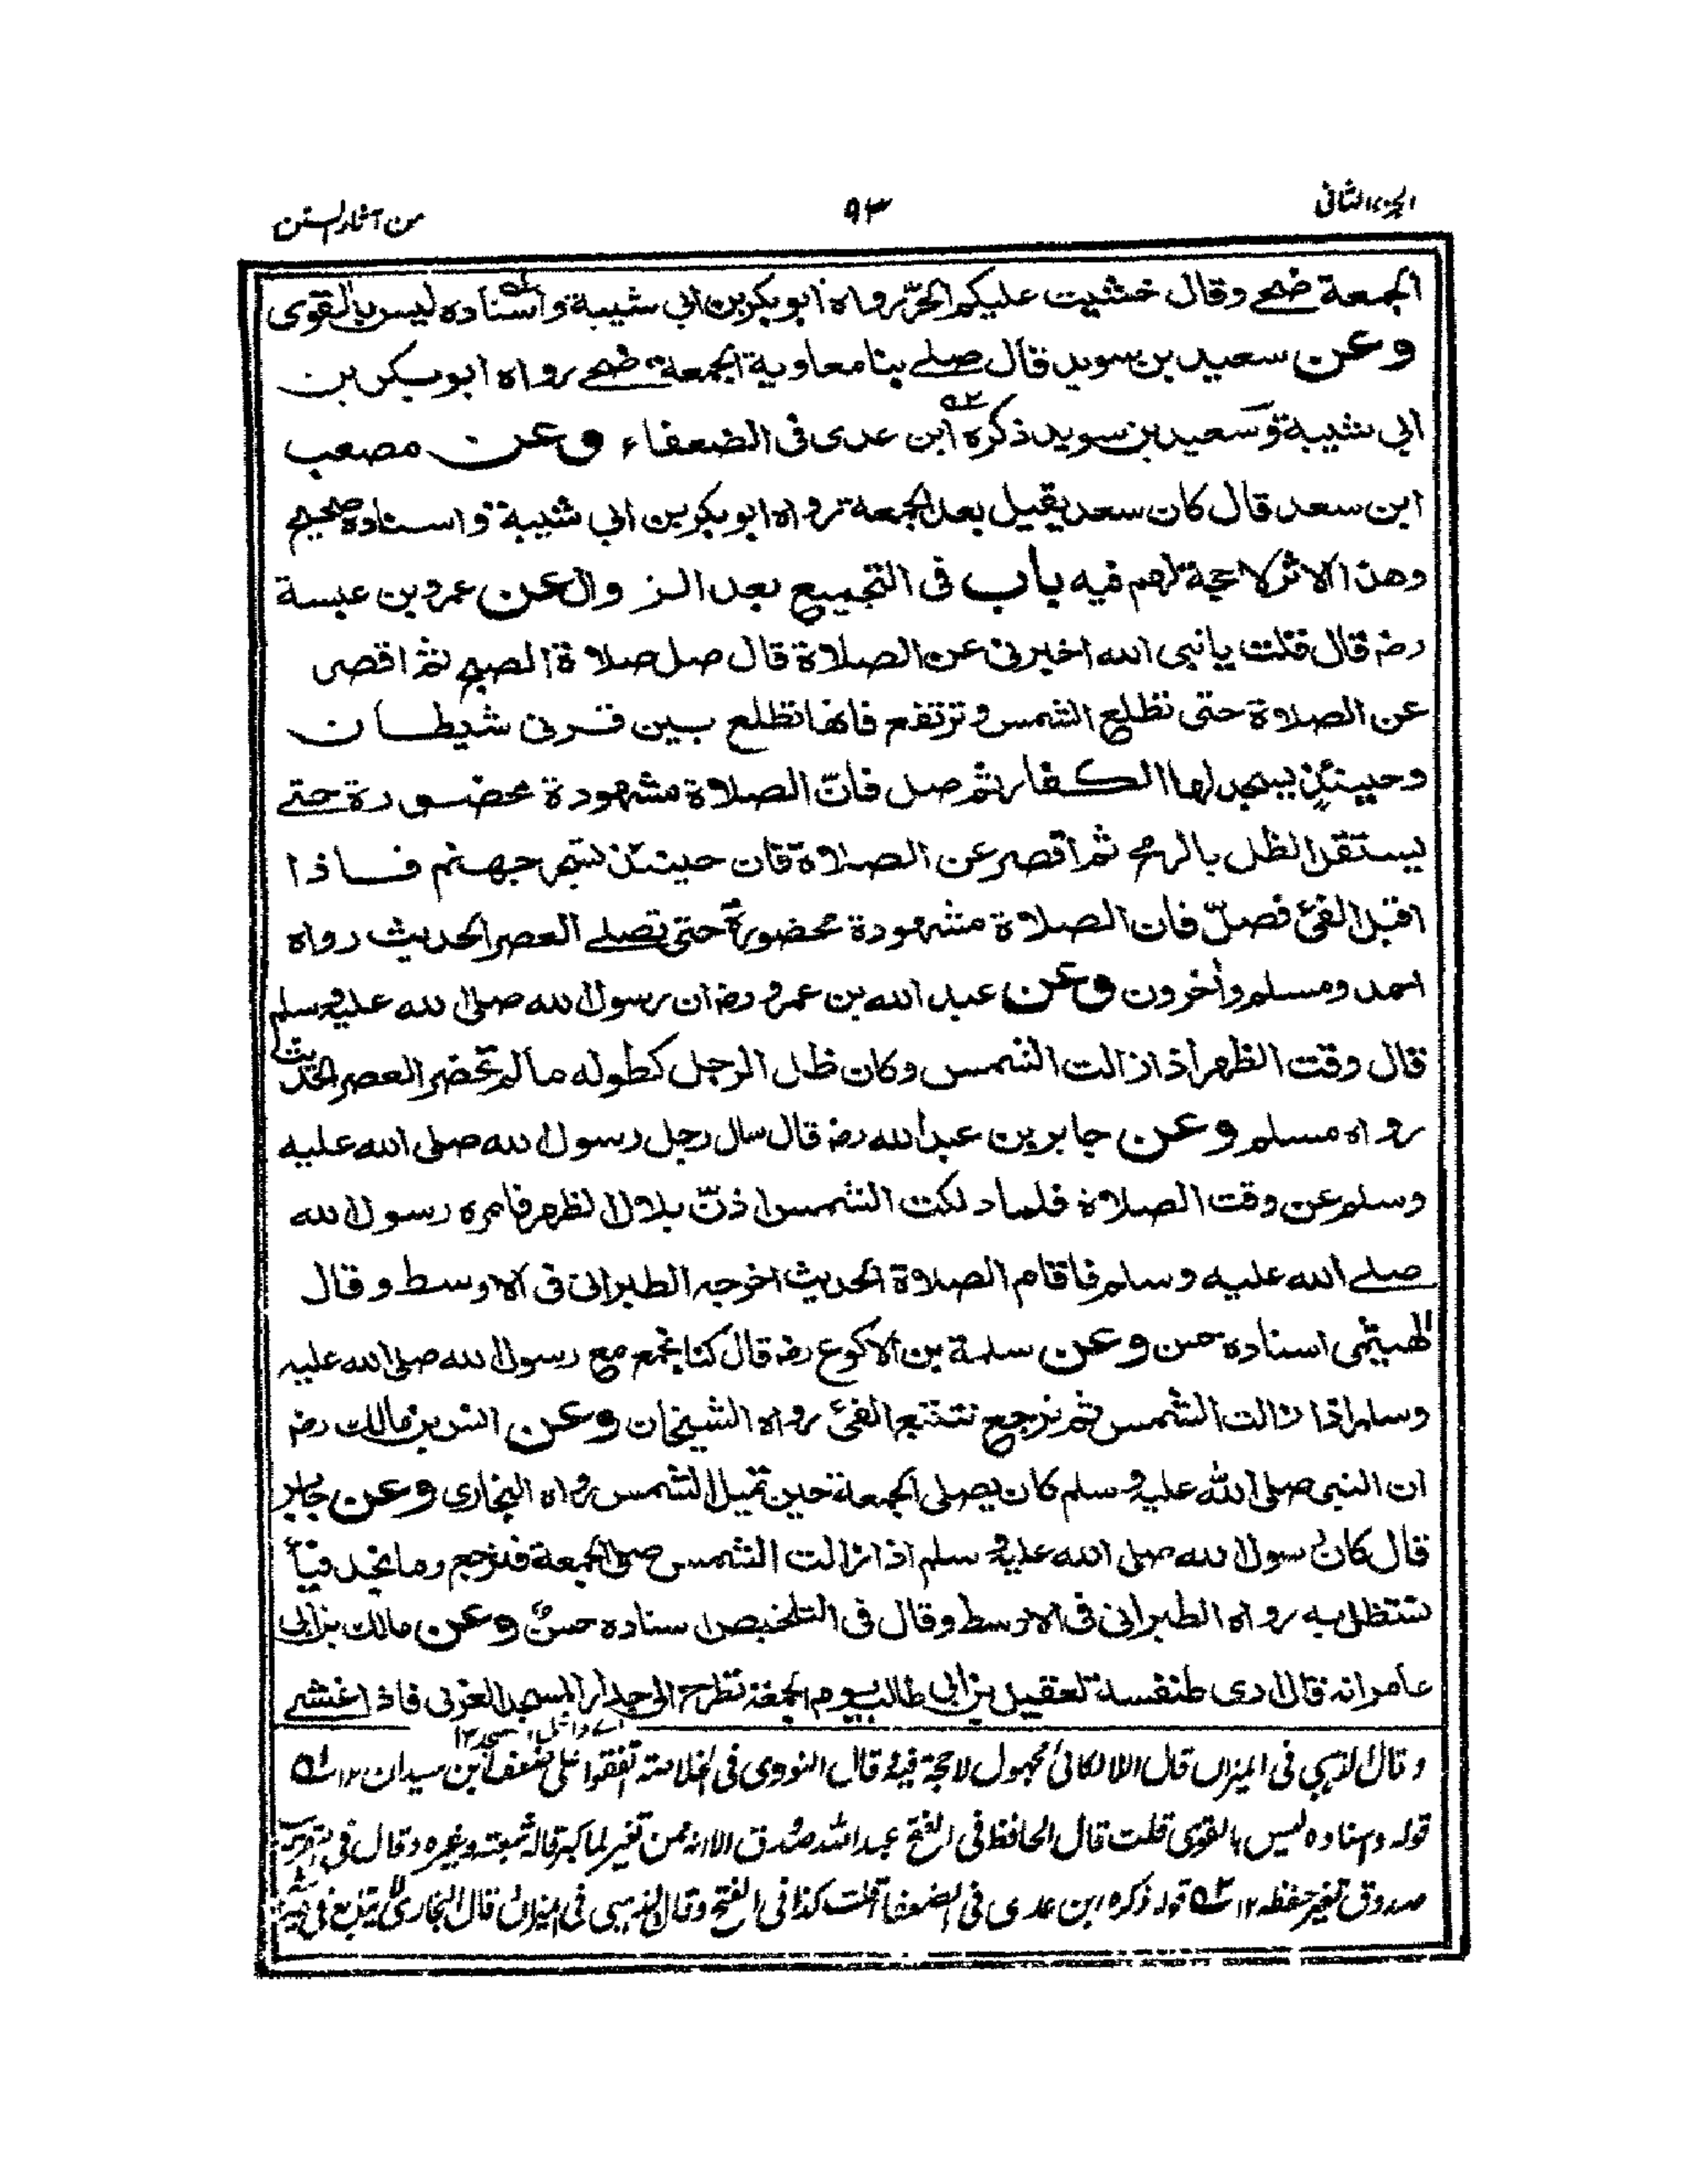 الجزء الثانی
٩٣
من آثار السنن
الجمعة ضحے وقال خشیت علیکم الحرّ رواه ابو بکر بن ابی شیبة واسناده لیس بالقوی
وعن سعید بن سوید قال صلے بنا معاویة الجمعة ضحے رواه ابو بکر بن
ابی شیبة وسعید بن سوید ذکره ابن عدی فی الضعفاء وعن مصعب
ابن سعد قال کان سعد یقیل بعد الجمعة رواه ابو بکر بن ابی شیبة واسناده صحیح
وهذا الاثر لا حجة لهم فیه باب فی التجمیع بعد الزوال عن عمرو بن عبسة
رضـ قال قلت یا نبی الله اخبرنی عن الصلاة قال صل صلاة الصبح ثم اقصر
عن الصلاة حتی تطلع الشمس وترتفع فانها تطلع بین قرنی شیطان
وحینئذٍ یسجد لها الکفار ثم صل فانّ الصلاة مشهودة محضورة حتے
یستقل الظل بالرمح ثم اقصر عن الصلاة فان حینئذ تسجر جهنم فاذا
اقبل الفیٔ فصلّ فان الصلاة مشهودة محضورة حتی تصلے العصر الحدیث رواه
احمد ومسلم وأخرون وعن عبد الله بن عمرو رضـ ان رسول الله صلی الله علیه وسلم
قال وقت الظهر اذا زالت الشمس وکان ظل الرجل کطوله ما لم تحضر العصر الحدیث
رواه مسلم وعن جابر بن عبد الله رضـ قال سال رجل رسول الله صلی الله علیه
وسلم عن وقت الصلاة فلما دلکت الشمس اذنّ بلال الظهر فامره رسول الله
صلے الله علیه وسلم فاقام الصلاة الحدیث اخرجه الطبرانی فی الاوسط وقال
الهیثمی اسناده حسن وعن سلمة بن الاکوع رضـ قال کنا نجمع مع رسول الله صلی الله علیه
وسلم اذا زالت الشمس ثم نرجع نتتبع الفیٔ رواه الشیخان وعن انس بن مالك رضـ
ان النبی صلی الله علیه وسلم کان یصلی الجمعة حین تمیل الشمس رواه البخاری وعن جابر
قال کان رسول الله صلی الله علیه وسلم اذا زالت الشمس صلی الجمعة فنرجع وما نجد فیأ
نستظل به رواه الطبرانی فی الاوسط وقال فی التلخیص اسناده حسنٌ وعن مالك بن ابی
عامر انه قال اری طنفسة لعقیل بن ابی طالب یوم الجمعة تطرح الی جدار المسجد الغربی فاذا غشے
اے داخل المسجد ١٢
وقال الذهبی فی المیزان قال اللالکائی مجهول لا حجة فیه قال النووی فی الخلاصة اتفقوا علی ضعف ابن سیدان ١٢
قوله واسناده لیس بالقوی قلت قال الحافظ فی الفتح عبد الله صدوق الا انه ممن تغیر لما کبر قاله شعبة وغیره وقال فی التقریب
صدوق تغیر حفظه ١٢ قوله ذکره ابن عدی فی الضعفاء قلت کذا فی الفتح وقال الذهبی فی المیزان قال البخاری لا یتابع فی حدیثه